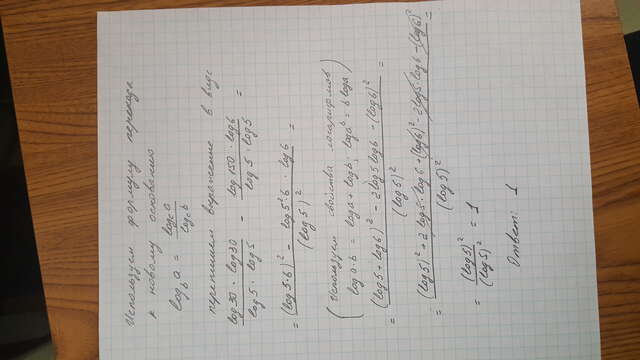 Используем формулу перехода
к новому основанию
log_b a = log_c a / log_c b
перепишем выражение в виде
(log 30 · log 30) / (log 5 · log 5) - (log 150 · log 6) / (log 5 · log 5) =
= ((log 5·6)² - log 5²·6 · log 6) / (log 5)² =
(Используем свойства логарифмов
log a·b = log a + log b; log a^b = b log a)
= ((log 5 + log 6)² - 2 log 5 log 6 - (log 6)²) / (log 5)² =
= ((log 5)² + 2 log 5 · log 6 + (log 6)² - 2 log 5 log 6 - (log 6)²) / (log 5)² =
= (log 5)² / (log 5)² = 1
Ответ: 1